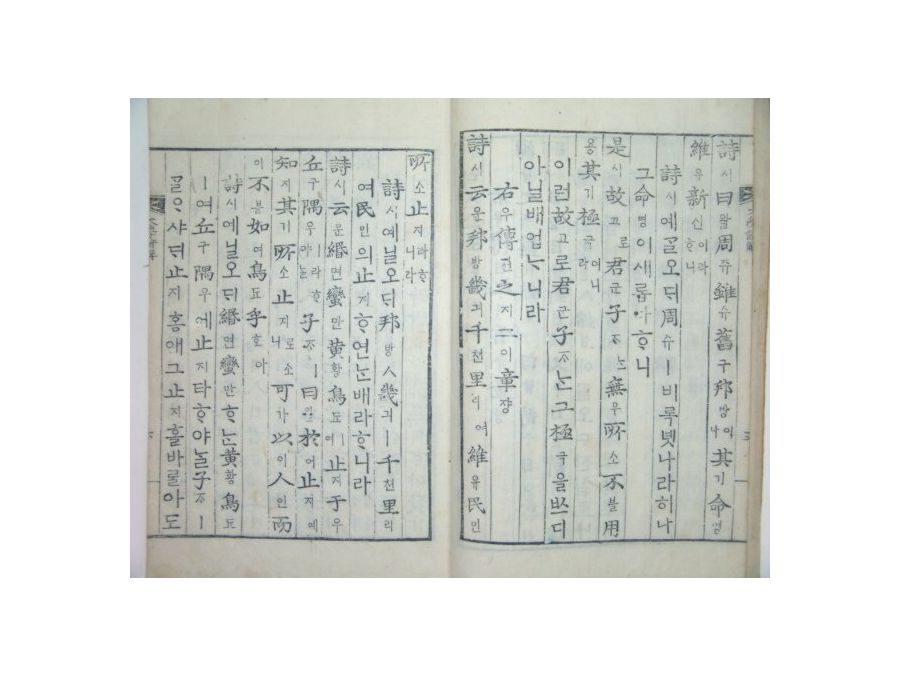 詩시曰왈周쥬雖슈舊구邦방이나其기命명
維유新신이라ᄒᆞ니
詩시예ᄀᆞᆯ오ᄃᆡ周쥬ㅣ비록녯나라히나
그命명이새롭다ᄒᆞ니
是시故고로君군子ᄌᆞᄂᆞᆫ無무所소不블用
용其기極극이니라
이런故고로君군子ᄌᆞᄂᆞᆫ그極극을ᄡᅳ디
아닐배업ᄂᆞ니라
右우傳뎐之지二이章쟝
詩시云운邦방畿긔千쳔里리여維유民민
所소止지라ᄒᆞ니라
詩시예닐오ᄃᆡ邦방ㅅ畿긔ㅣ千쳔里리
여民민의止지ᄒᆞ연ᄂᆞᆫ배라ᄒᆞ니라
詩시云운緡면蠻만黃황鳥됴ㅣ여止지于우
丘구隅우ㅣ라ᄒᆞ야ᄂᆞᆯ子ᄌᆞㅣ曰왈於어止지예
知지其기所소止지로소니可가以이人인而
이不블如여鳥됴乎호아
詩시예닐오ᄃᆡ緡면蠻만ᄒᆞᆫ黃황鳥됴
ㅣ여丘구隅우에止지타ᄒᆞ야ᄂᆞᆯ子ᄌᆞㅣ
ᄀᆞᆯᄋᆞ샤ᄃᆡ止지홈애그止지ᄒᆞᆯ바ᄅᆞᆯ아도